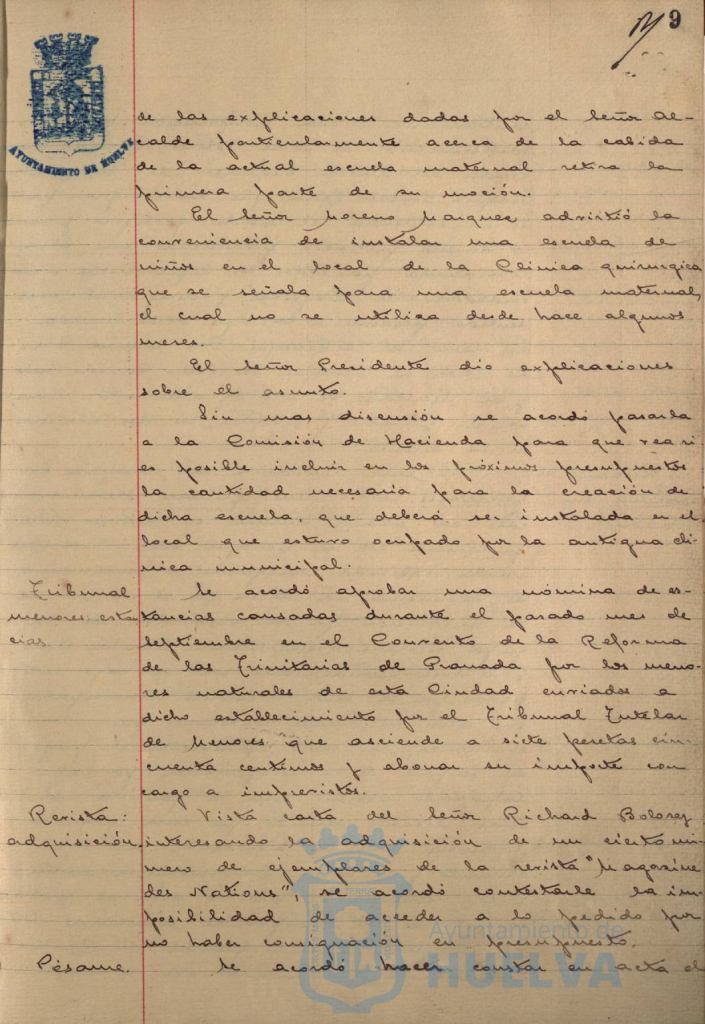 9
AYUNTAMIENTO DE HUELVA
de las explicaciones dadas por el Señor Al-
calde particularmente acerca de la cabida
de la actual escuela maternal retira la
primera parte de su moción.
El Señor Moreno Marquez advirtió la
conveniencia de instalar una escuela de
niños en el local de la Clinica quirurgica
que se señala para una escuela maternal,
el cual no se utiliza desde hace algunos
meses.
El Señor Presidente dio explicaciones
sobre el asunto.
Sin mas discusión se acordó pasarla
a la Comisión de Hacienda para que vea si
es posible incluir en los próximos presupuestos
la cantidad necesaria para la creación de
dicha escuela, que deberá ser instalada en el
local que estuvo ocupado por la antigua cli-
nica municipal.
Tribunal
menores: estan
cias
Se acordó aprobar una nómina de es-
tancias causadas durante el pasado mes de
Septiembre en el Convento de la Reforma
de las Trinitarias de Granada por los meno-
res naturales de esta Ciudad enviados a
dicho establecimiento por el Tribunal Tutelar
de Menores que asciende a siete pesetas cin-
cuenta centimos y abonar su importe con
cargo a imprevistos.
Revista:
adquisición
Vista carta del Señor Richard
interesando la adquisición de un cierto nú-
mero de ejemplares de la revista "Magazine
des Nations", se acordó contestarle la im-
posibilidad de acceder a lo pedido por
no haber consignación en presupuesto.
Pésame.
Se acordó hacer constar en acta el
Ayuntamiento de
HUELVA